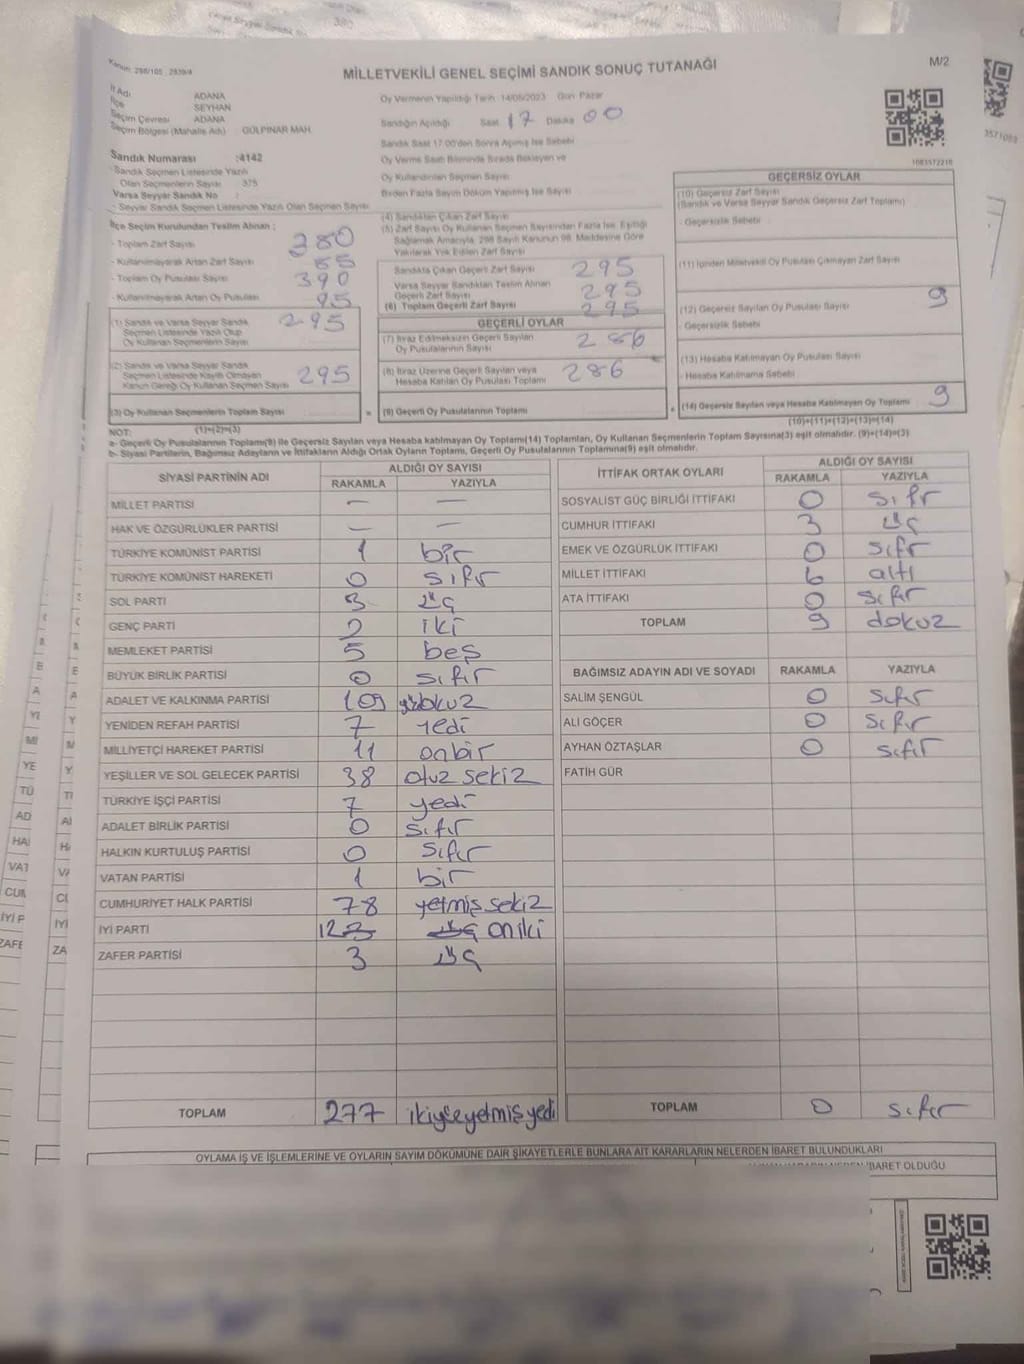 Kanun: 298/105 , 2839/4
MİLLETVEKİLİ GENEL SEÇİMİ SANDIK SONUÇ TUTANAĞI
M/2
İl Adı ADANA
İlçe SEYHAN
Seçim Çevresi ADANA
Seçim Bölgesi (Mahalle Adı) GÜLPINAR MAH.
Sandık Numarası :4142
Sandık Seçmen Listesinde Yazılı
Olan Seçmenlerin Sayısı : 375
Varsa Seyyar Sandık No :
- Seyyar Sandık Seçmen Listesinde Yazılı Olan Seçmen Sayısı
Oy Vermenin Yapıldığı Tarih :14/05/2023 Gün: Pazar
Sandığın Açıldığı Saat 17 Dakika 00
Sandık Saat 17:00'den Sonra Açılmış İse Sebebi
Oy Verme Saati Bitiminde Sırada Bekleyen ve
Oy Kullandırılan Seçmen Sayısı
Birden Fazla Sayım Döküm Yapılmış İse Sayısı
1083572210
İlçe Seçim Kurulundan Teslim Alınan ;
- Toplam Zarf Sayısı 380
- Kullanılmayarak Artan Zarf Sayısı 85
- Toplam Oy Pusulası Sayısı 390
- Kullanılmayarak Artan Oy Pusulası 95
(1) Sandık ve Varsa Seyyar Sandık
Seçmen Listesinde Yazılı Olup
Oy Kullanan Seçmenlerin Sayısı 295
(2) Sandık ve Varsa Seyyar Sandık
Seçmen Listesinde Kayıtlı Olmayan
Kanun Gereği Oy Kullanan Seçmen Sayısı 295
(3) Oy Kullanan Seçmenlerin Toplam Sayısı =
(1)+(2)=(3)
(4) Sandıktan Çıkan Zarf Sayısı
(5) Zarf Sayısı Oy Kullanan Seçmen Sayısından Fazla İse, Eşitliği
Sağlamak Amacıyla, 298 Sayılı Kanunun 98. Maddesine Göre
Yakılarak Yok Edilen Zarf Sayısı
Sandıkta Çıkan Geçerli Zarf Sayısı 295
Varsa Seyyar Sandıktan Teslim Alınan
Geçerli Zarf Sayısı 295
(6) Toplam Geçerli Zarf Sayısı 295
GEÇERLİ OYLAR
(7) İtiraz Edilmeksizin Geçerli Sayılan
Oy Pusulalarının Sayısı 286
(8) İtiraz Üzerine Geçerli Sayılan veya
Hesaba Katılan Oy Pusulası Toplamı 286
(9) Geçerli Oy Pusulalarının Toplamı +
GEÇERSİZ OYLAR
(10) Geçersiz Zarf Sayısı
(Sandık ve Varsa Seyyar Sandık Geçersiz Zarf Toplamı)
- Geçersizlik Sebebi
(11) İçinden Milletvekili Oy Pusulası Çıkmayan Zarf Sayısı
(12) Geçersiz Sayılan Oy Pusulası Sayısı 9
- Geçersizlik Sebebi
(13) Hesaba Katılmayan Oy Pusulası Sayısı
- Hesaba Katılmama Sebebi
(14) Geçersiz Sayılan veya Hesaba Katılmayan Oy Pusulası Toplamı 9
(10)+(11)+(12)+(13)=(14)
NOT:
a- Geçerli Oy Pusulalarının Toplamı(9) ile Geçersiz Sayılan veya Hesaba katılmayan Oy Toplamı(14) Toplamları, Oy Kullanan Seçmenlerin Toplam Sayısına(3) eşit olmalıdır. (9)+(14)=(3)
b- Siyasi Partilerin, Bağımsız Adayların ve İttifakların Aldığı Ortak Oyların Toplamı, Geçerli Oy Pusulalarının Toplamına(9) eşit olmalıdır.
SİYASİ PARTİNİN ADI ALDIĞI OY SAYISI
RAKAMLA YAZIYLA
MİLLET PARTİSI — —
HAK VE ÖZGÜRLÜKLER PARTİSİ — —
TÜRKİYE KOMÜNİST PARTİSİ 1 bir
TÜRKİYE KOMÜNİST HAREKETİ 0 sıfır
SOL PARTİ 3 üç
GENÇ PARTİ 2 iki
MEMLEKET PARTİSİ 5 beş
BÜYÜK BİRLİK PARTİSİ 0 sıfır
ADALET VE KALKINMA PARTİSİ 109 yüzdokuz
YENİDEN REFAH PARTİSİ 7 yedi
MİLLİYETÇİ HAREKET PARTİSİ 11 onbir
YEŞİLLER VE SOL GELECEK PARTİSİ 38 otuz sekiz
TÜRKİYE İŞÇİ PARTİSİ 7 yedi
ADALET BİRLİK PARTİSİ 0 sıfır
HALKIN KURTULUŞ PARTİSİ 0 sıfır
VATAN PARTİSİ 1 bir
CUMHURİYET HALK PARTİSİ 78 yetmiş sekiz
İYİ PARTİ 12 3 üç oniki
ZAFER PARTİSİ 3 üç
TOPLAM 277 ikiyüzyetmişyedi
İTTİFAK ORTAK OYLARI ALDIĞI OY SAYISI
RAKAMLA YAZIYLA
SOSYALİST GÜÇ BİRLİĞİ İTTİFAKI 0 sıfır
CUMHUR İTTİFAKI 3 üç
EMEK VE ÖZGÜRLÜK İTTİFAKI 0 sıfır
MİLLET İTTİFAKI 6 altı
ATA İTTİFAKI 0 sıfır
TOPLAM 9 dokuz
BAĞIMSIZ ADAYIN ADI VE SOYADI RAKAMLA YAZIYLA
SALİM ŞENGÜL 0 sıfır
ALİ GÖÇER 0 sıfır
AYHAN ÖZTAŞLAR 0 sıfır
FATİH GÜR
TOPLAM 0 sıfır
OYLAMA İŞ VE İŞLEMLERİNE VE OYLARIN SAYIM DÖKÜMÜNE DAİR ŞİKAYETLERLE BUNLARA AİT KARARLARIN NELERDEN İBARET BULUNDUKLARI
İBARET OLDUĞU